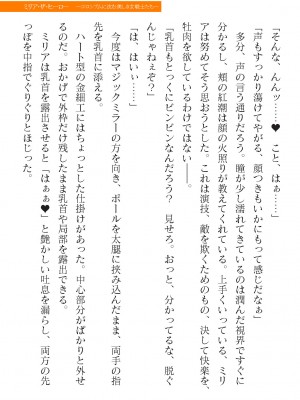 ミリア・ザ・ヒーロー
「そんな、んんッ……♥　こと、はぁ……」
「声もすっかり蕩けてやがる、顔つきもいかにもって感じだなぁ」
多分、声の言う通りだろう。瞳が少し濡れてきているのは潤んだ視界ですぐに
分かるし、頬の紅潮は顔の火照りが教えてくれている。上手くいっている、ミリ
アは努めてそう思おうとした。これは演技、敵を欺くためのもの、決して快楽を、
牡肉を欲しているわけではない――。
「乳首もとっくにビンビンなんだろう？　見せろ。おっと、分かってるな、脱ぐ
んじゃねぇぞ？」
「は、はい……」
今度はマジックミラーの方を向き、ポールを太腿に挟み込んだまま、両手の指
先を乳首に添える。
ハート型の金細工にはちょっとした仕掛けがあった。中心部分がぱかりと外せ
るのだ。おかげで外枠だけ残したまま乳首や局部を露出できる。
ミリアは乳首を露出させると「はぁぁ♥」と艶かしい吐息を漏らし、両方の先
っぽを中指でぐりぐりとほじった。